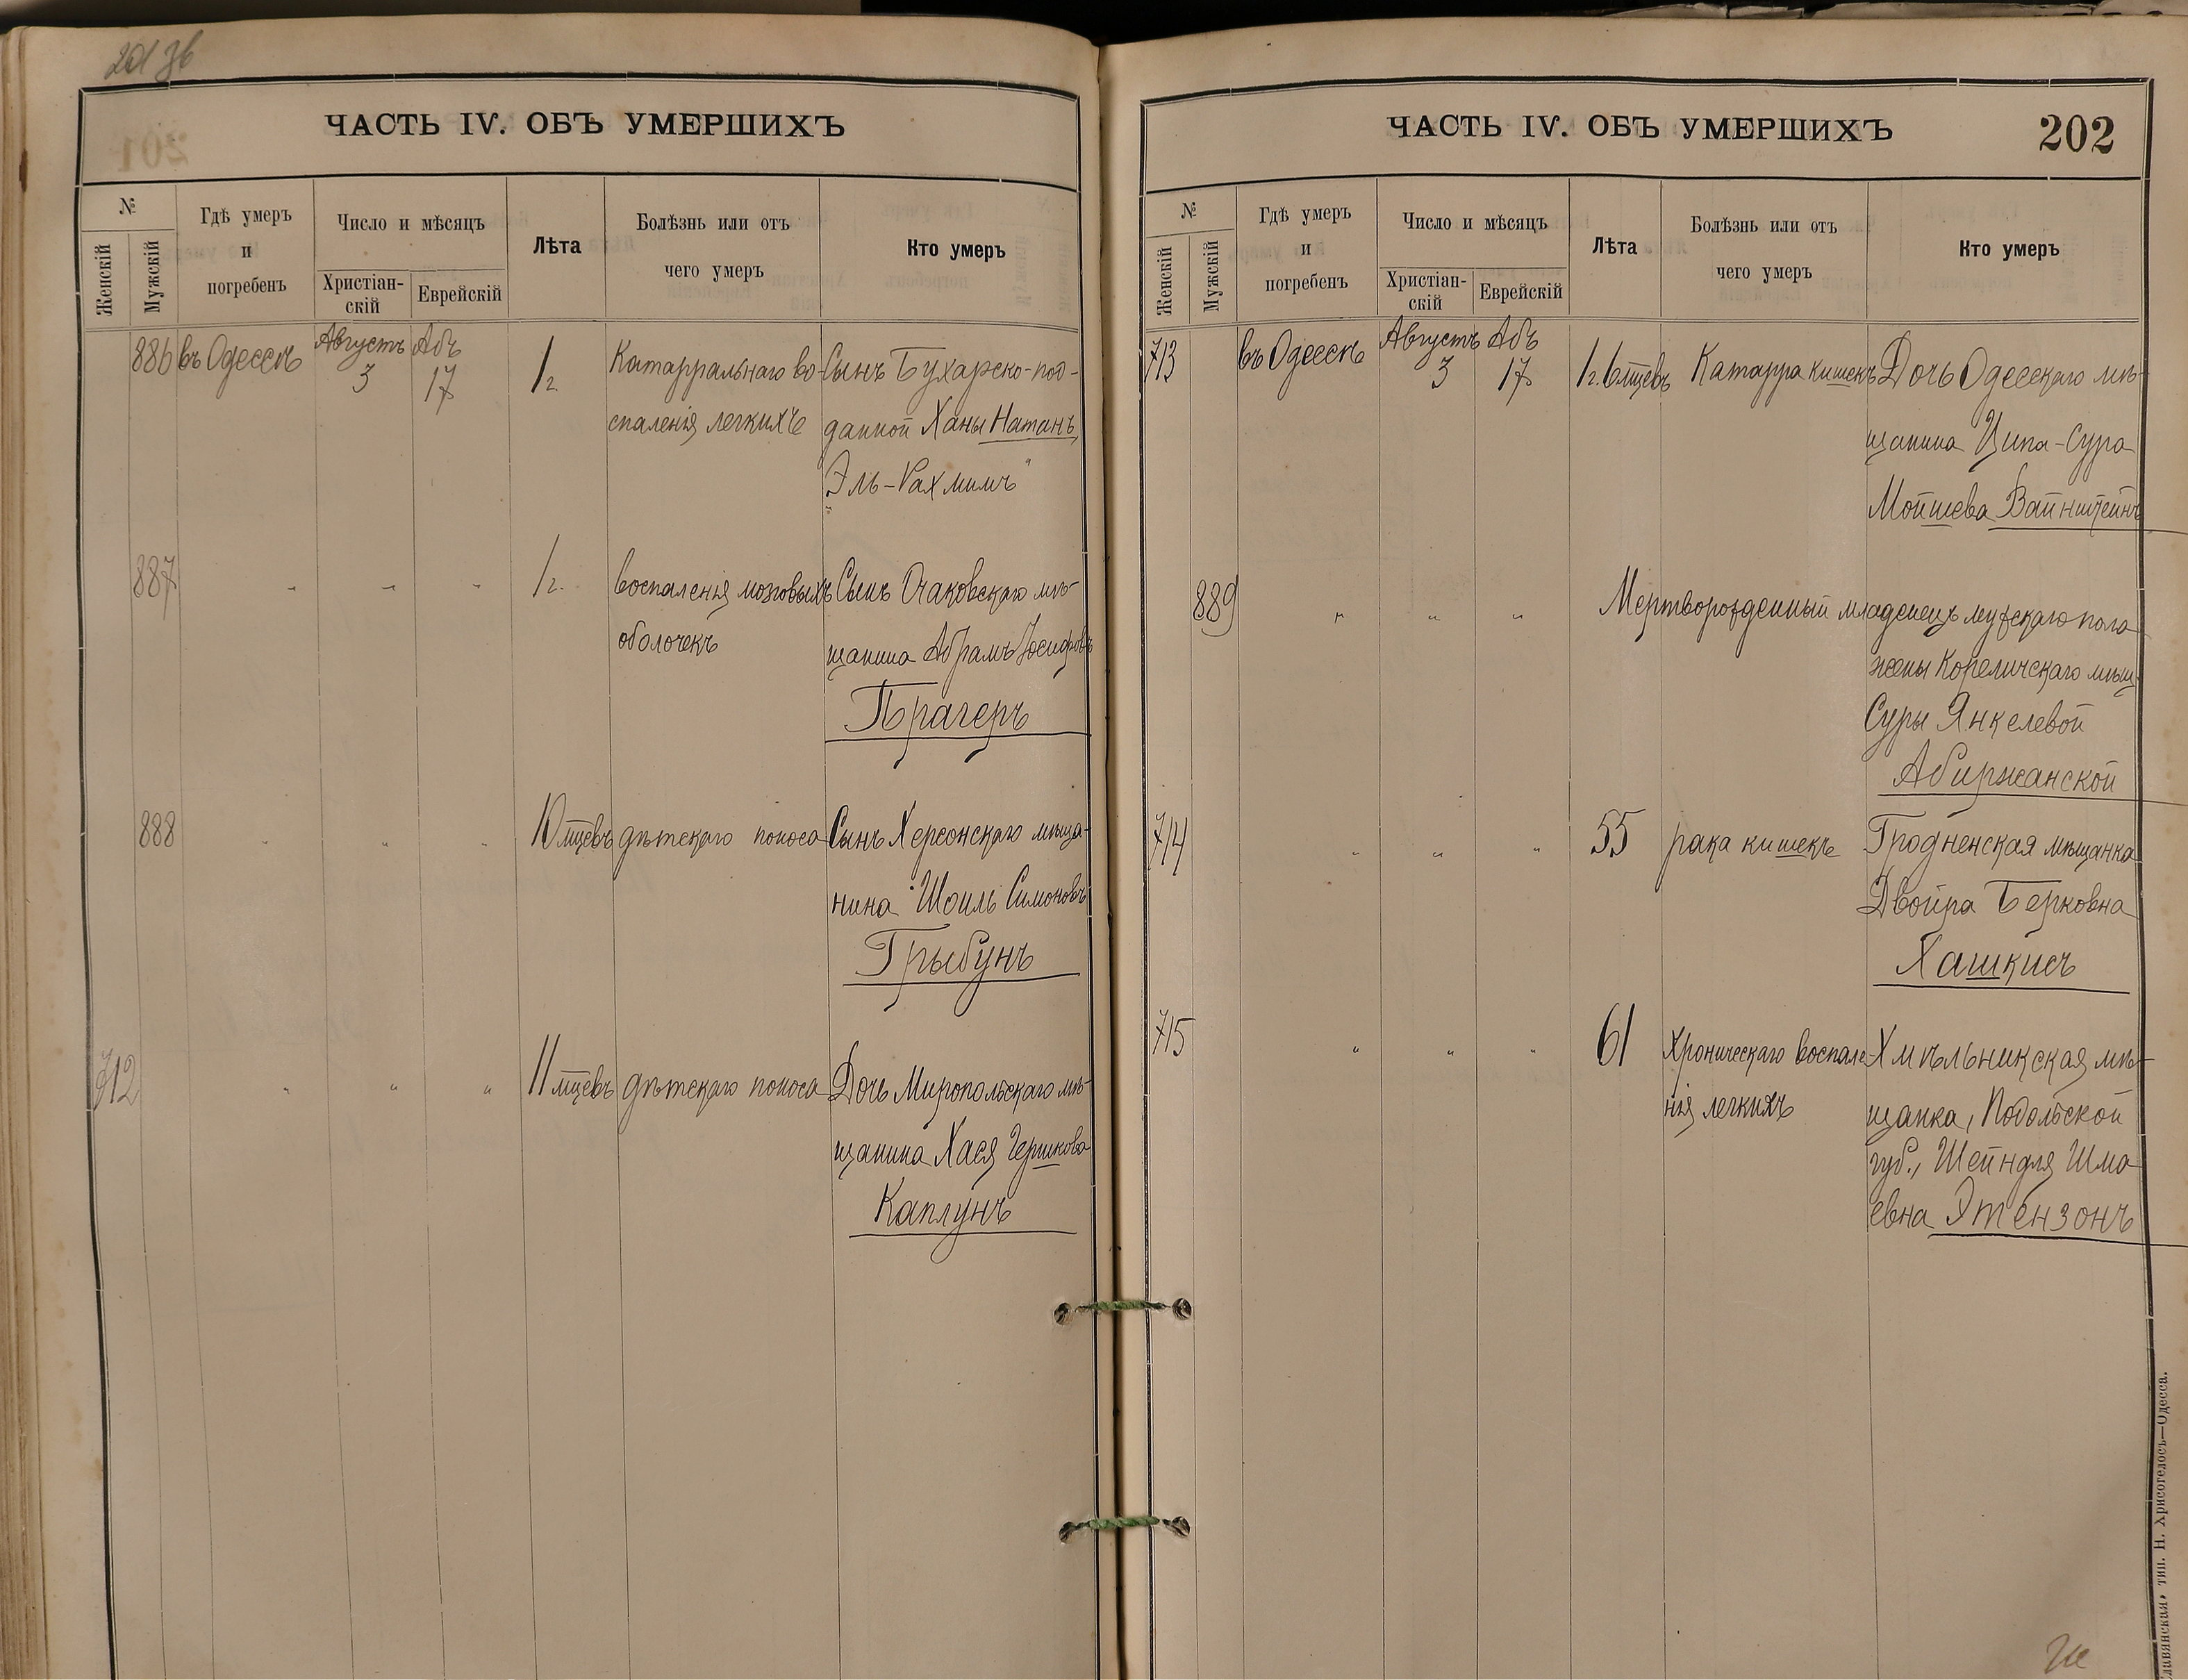 201 об
ЧАСТЬ IV. ОБЪ УМЕРШИХЪ
№
Женскій
Мужскій
Гдѣ умеръ
и
погребенъ
Число и мѣсяцъ
Христіан-
скій
Еврейскій
Лѣта
Болѣзнь или отъ
чего умеръ
Кто умеръ
886 въ Одессѣ Августъ 3 Абъ 17 1 г. Катарральнаго во- Сынъ Бухарско-под-
спаленія легкихъ данной Ханы Натанъ,
Эль-Рахмимъ"
887 " " " 1 г. воспаленія мозговыхъ Сынъ Очаковскаго мѣ-
оболочекъ щанина Абрамъ Іосифовъ
Прагеръ
888 " " " 10 мцевъ дѣтскаго поноса Сынъ Херсонскаго мѣща-
нина Шоиль Симоновъ
Грыбунъ
712 " " " 11 мцевъ дѣтскаго поноса Дочь Миропольскаго мѣ-
щанина Хася Гершкова
Каплунъ
ЧАСТЬ IV. ОБЪ УМЕРШИХЪ 202
№
Женскій
Мужскій
Гдѣ умеръ
и
погребенъ
Число и мѣсяцъ
Христіан-
скій
Еврейскій
Лѣта
Болѣзнь или отъ
чего умеръ
Кто умеръ
713 въ Одессѣ Августъ 3 Абъ 17 1 г. 6 мцевъ Катарра кишекъ Дочь Одесскаго мѣ-
щанина Ципа-Сура
Мойшева Вайнштейнъ
889 " " " Мертворожденный младенецъ мужскаго пола
жены Кореличскаго мѣщ.
Суры Янкелевой
Абиржанской
714 " " " 55 рака кишекъ Гродненская мѣщанка
Двойра Берковна
Хашкисъ
715 " " " 61 Хроническаго воспале- Хмѣльникская мѣ-
нія легкихъ щанка, Подольской
губ., Шейндля Шма
евна Этензонъ
тип. Н. Хрисогелосъ—Одесса.